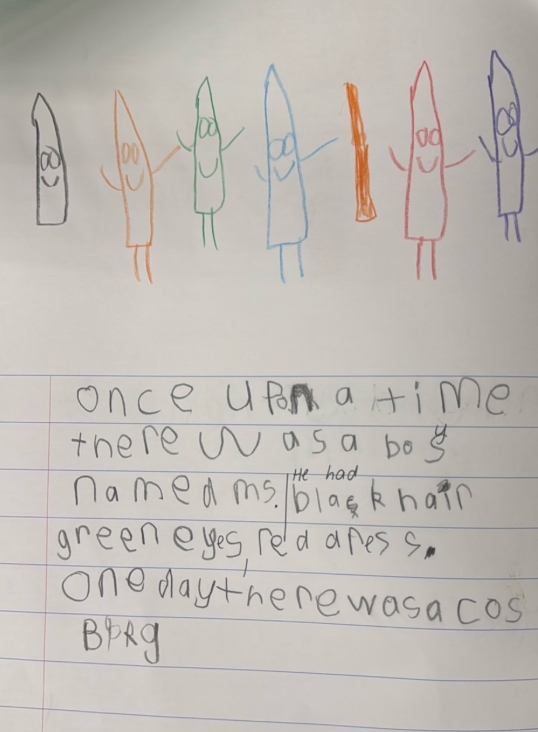 once upon a time
there was a boy
named ms. He had black hair
green eyes, red dress.
One day there was a cos
BpRg